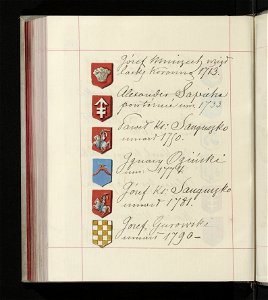 Józef Mniszech
1713.
Alexander Sapieha
1733
Paweł Ks: Sanguszko
umarł 1750.
Ignacy Ogiński
um: 1775
Józef Ks: Sanguszko
umarł 1781.
Józef Gurowski
umarł 1790 –